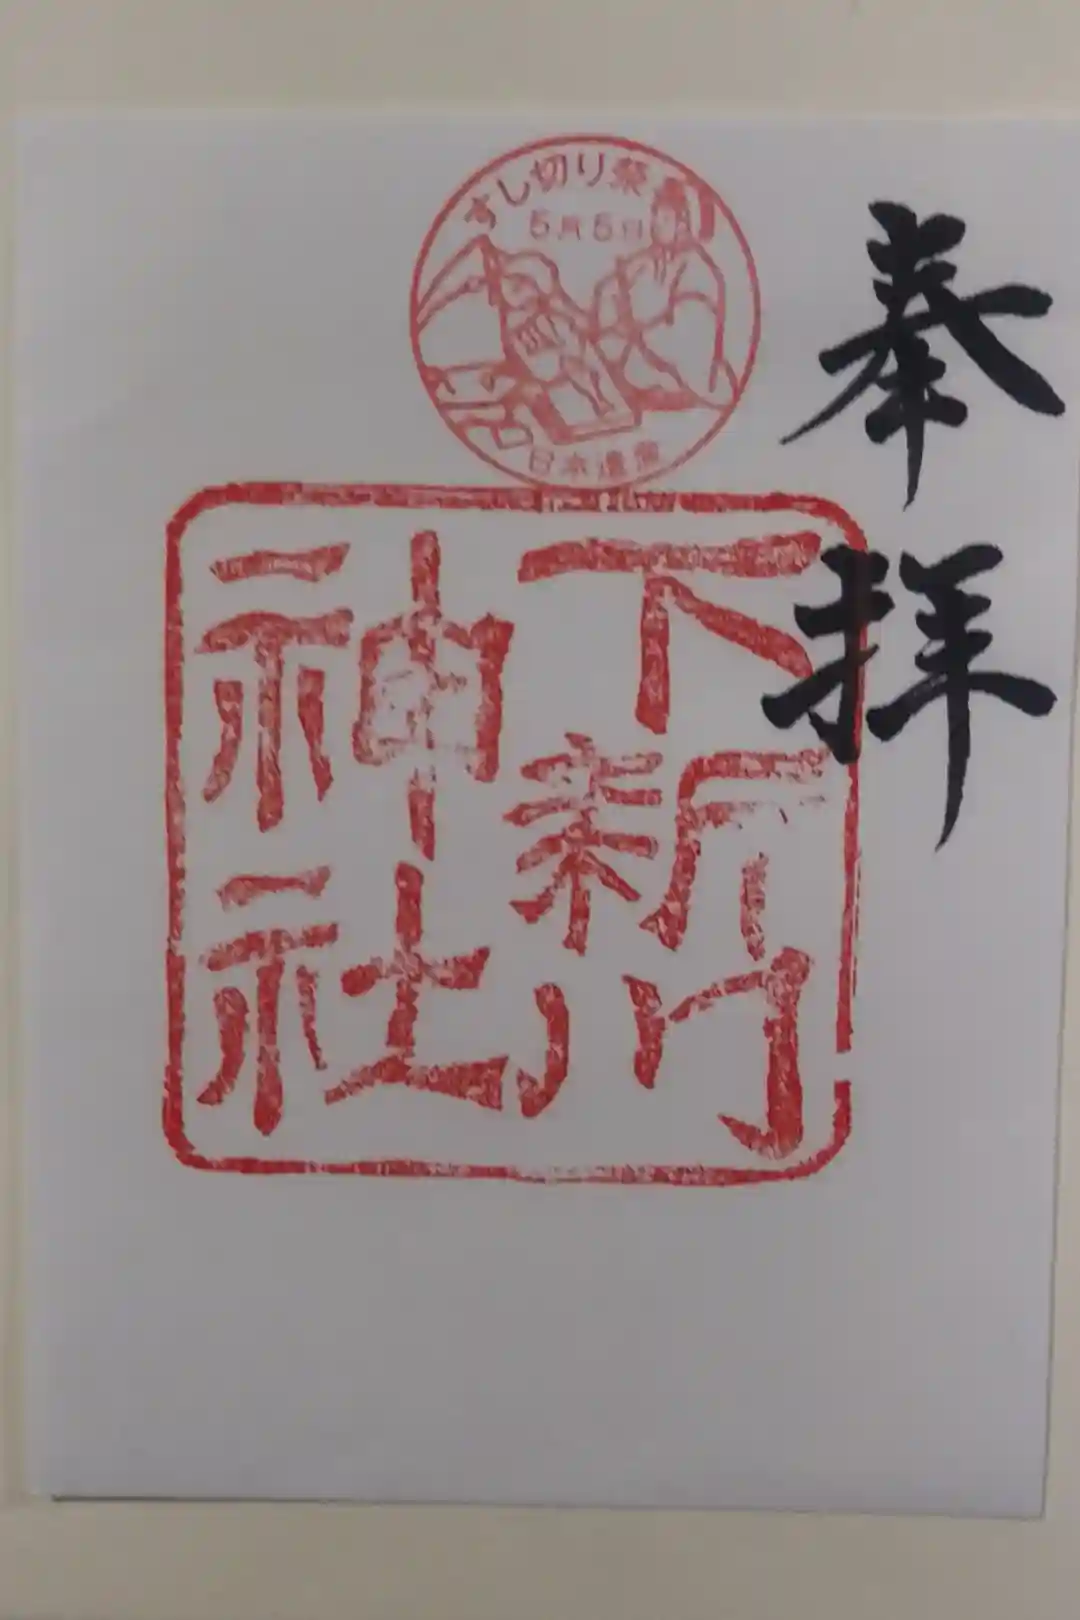 奉拝
すし切り祭
5月5日
日本遺産
下新川
神社